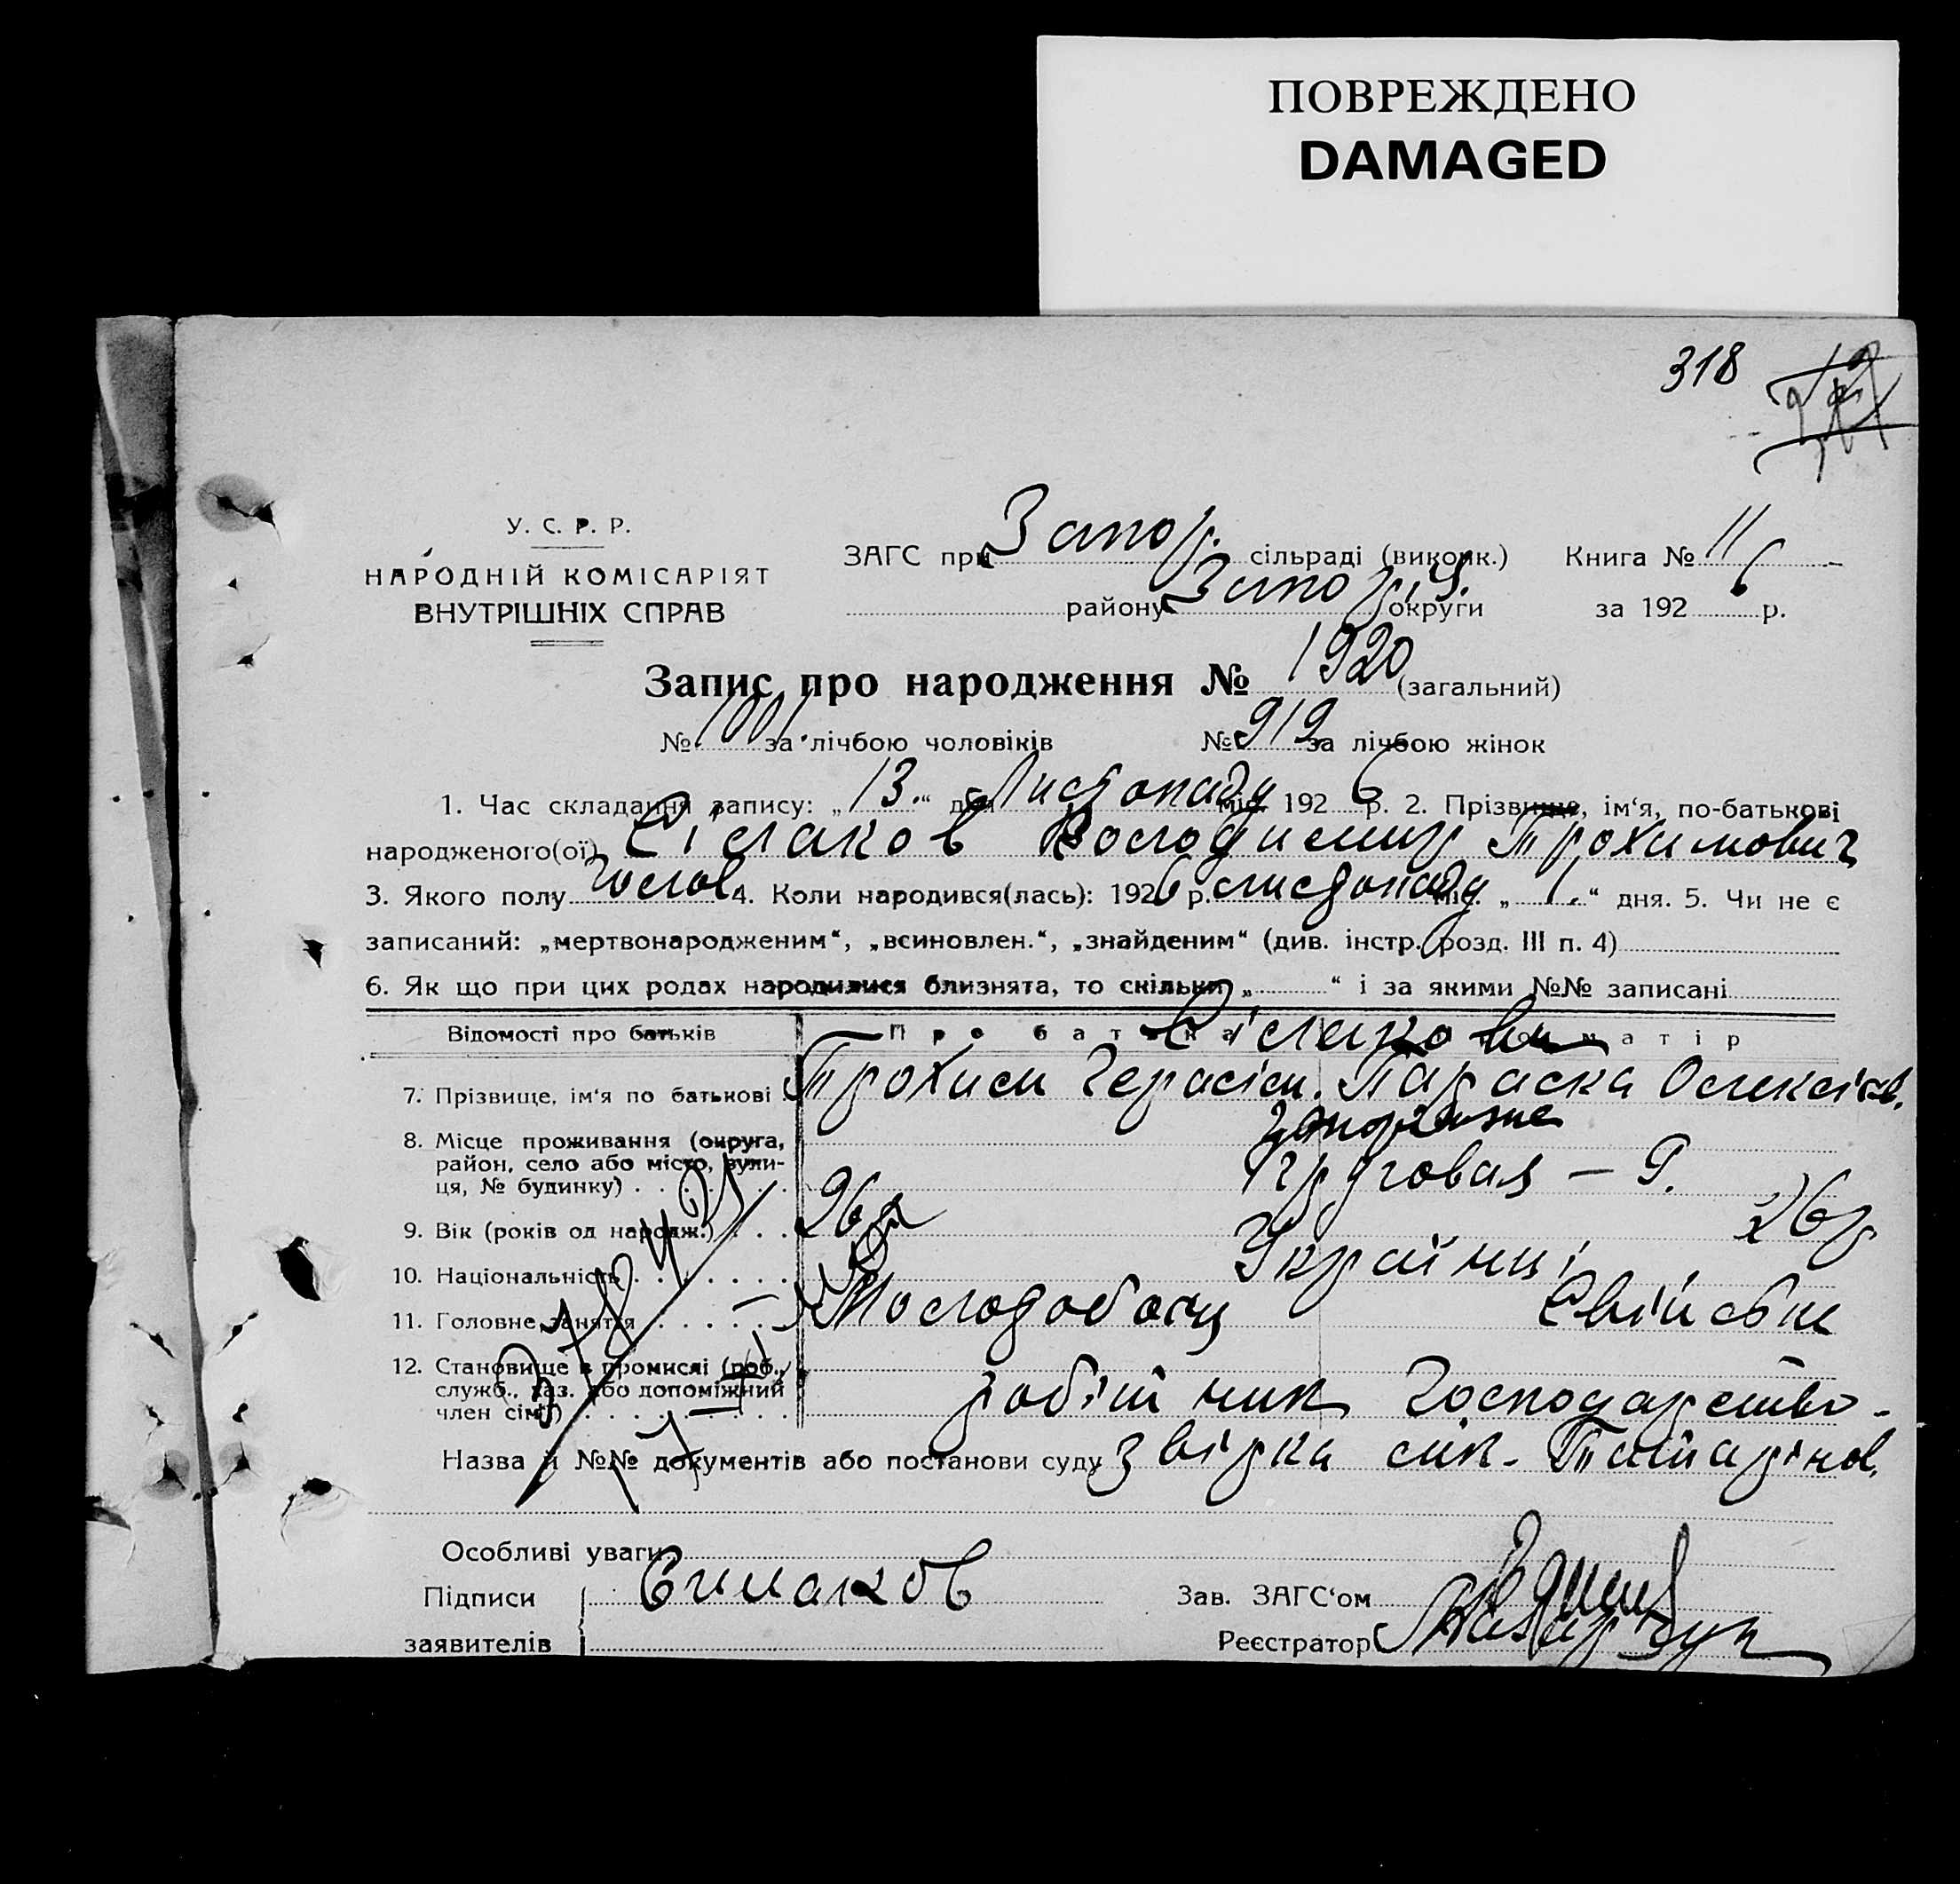 ПОВРЕЖДЕНО
DAMAGED
318
У. С. Р. Р.
НАРОДНІЙ КОМІСАРІЯТ
ВНУТРІШНІХ СПРАВ
ЗАГС при Запор. сільраді (виконк.) Книга № 11
району Запоріз. округи за 192 6 р.
Запис про народження № 1920 (загальний)
№ 1001 за лічбою чоловіків № 919 за лічбою жінок
1. Час складання запису: „ 13. “ дня Листопада міс. 192 6 р. 2. Прізвище, ім‘я, по-батькові
народженого(ої) Сілаков Володимир Трохимович
3. Якого полу чолов. 4. Коли народився(лась): 192 6 р. листопада міс. „ 1. “ дня. 5. Чи не є
записаний: „мертвонародженим“, „всиновлен.“, „знайденим“ (див. інстр. розд. III п. 4)
6. Як що при цих родах народилися близнята, то скільки „ “ і за якими №№ записані
Відомості про батьків Про батька Про матір
Сілакови
7. Прізвище, ім‘я по батькові Трохим Герасім. Параска Олексіїв.
8. Місце проживання (округа,
район, село або місто, вули-
ця, № будинку) Запоріжже
Кругова́я — 9.
9. Вік (років од народж.) 26 р 26 р
10. Національність Українці
11. Головне заняття Молодобоєц Свійське
12. Становище в промислі (роб.,
служб., хаз. або допоміжний
член сім‘ї) робітник господарство
Назва й №№ документів або постанови суду звірка лік.
Особливі уваги
Підписи Силаков Зав. ЗАГС‘ом
заявителів Реєстратор